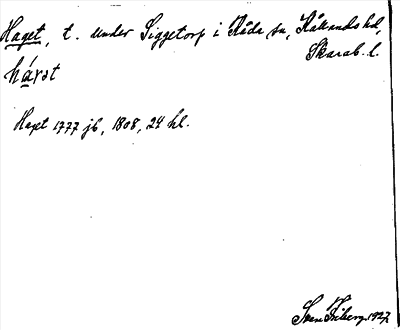 Haget, t. under Siggetorp i Råda sn, Kållands hd,
Skarab. l.
háɤət
Haget 1777 jb, 1808, 24 hl.
Sven Friberg 1927